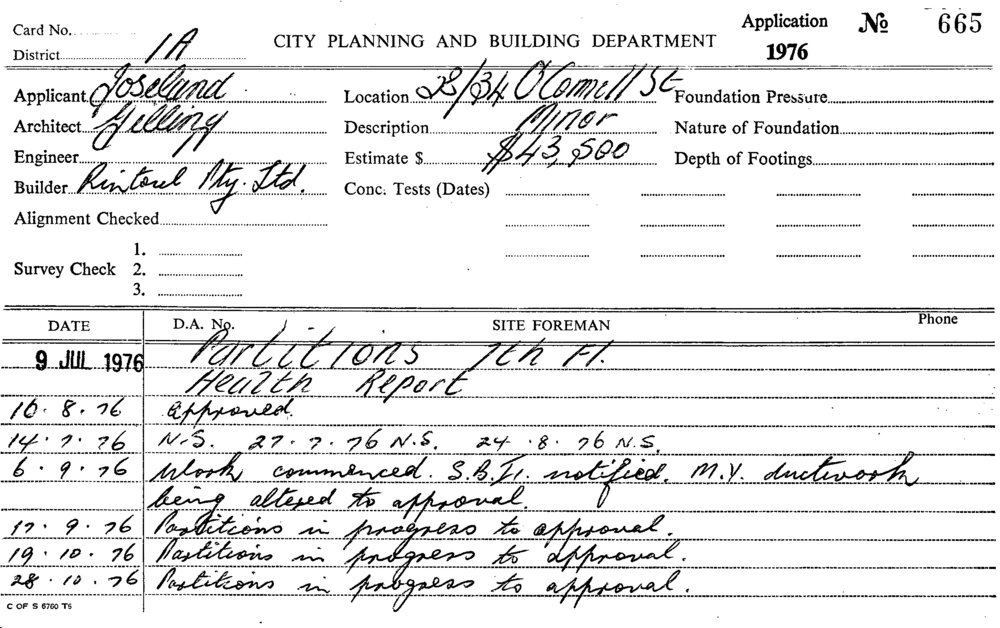 Card No.
District 1A
CITY PLANNING AND BUILDING DEPARTMENT
Application No 665
1976
Applicant Joseland
Location 28/34 O'Connell St
Foundation Pressure
Architect Gilling
Description Minor
Nature of Foundation
Engineer
Estimate $ $43,500
Depth of Footings
Builder Rintoul Pty. Ltd.
Conc. Tests (Dates)
Alignment Checked
Survey Check
1.
2.
3.
DATE D.A. No. SITE FOREMAN Phone
9 JUL 1976 Partitions 7th Fl.
Health Report
10.8.76 approved.
14.7.76 N.S. 27.7.76 N.S. 24.8.76 N.S.
6.9.76 Work commenced. S.B.I. notified. M.V. ductwork
being altered to approval.
17.9.76 Partitions in progress to approval.
19.10.76 Partitions in progress to approval.
28.10.76 Partitions in progress to approval.
C OF S 6760 T6